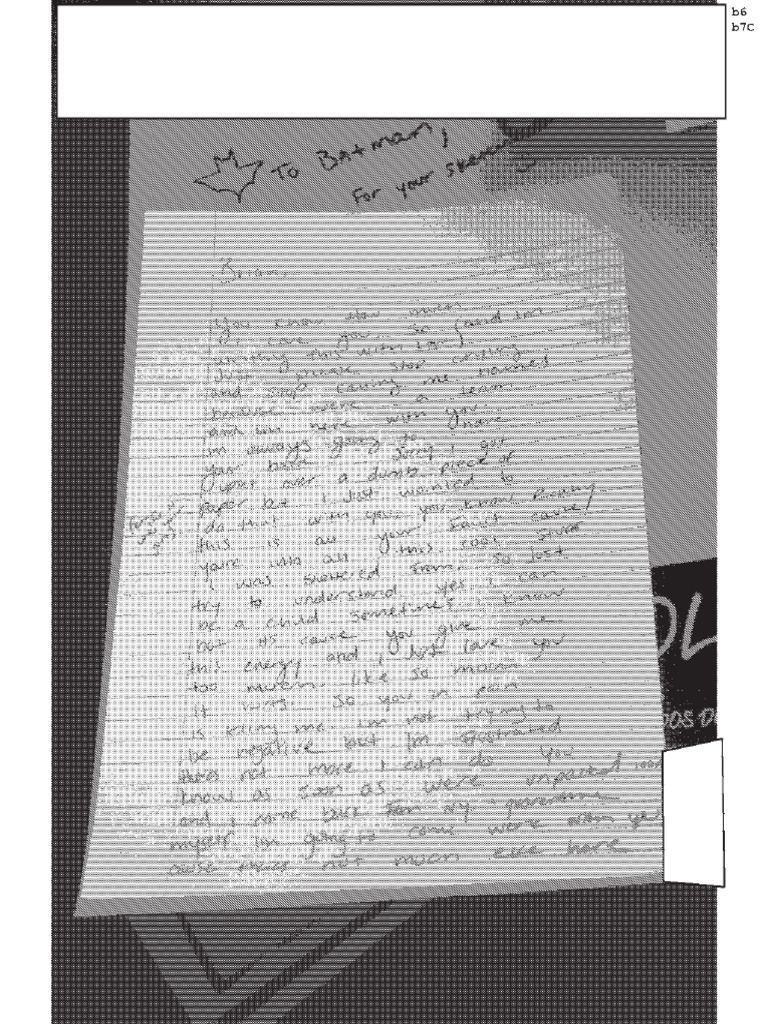 b6
b7C
To Batman,
For your sketches
Brian,
You know how much
I love you so (and im
anything this with you)
Just please stop crying
and stop calling me names
because we're a team
and im here with you
im always going to have
your back. Sorry I got
upset over a dumb piece of
paper but I just wanted to
do that with you you know
this is all your fault cause
youre into all this cool stuff
I was sheltered from. so just
try to understand yes i can
be a child sometimes I know
but its cause you give me
this energy and i just love you
too much like so much
it hurts. So you in pain
is killing me. im not trying to
be negative but Im frustrated
theres not more i can do you
know as soon as were unpacked
and i come back from my
myself im going to come work with you
cause theres not much else here
OL
DOS D